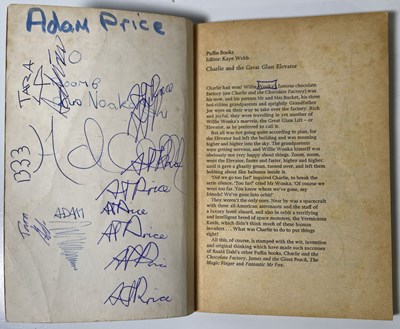 Adam Price
TARA
Noak
B33
Adam
Tara
ADAM
A P Price
A P Price
A P Price
A P Price
A P Price
Puffin Books
Editor: Kaye Webb
Charlie and the Great Glass Elevator
Charlie had won! Willie Wonka's famous chocolate
factory (see Charlie and the Chocolate Factory) was
his now, and his parents Mr and Mrs Bucket, his three
bed-ridden grandparents and sprightly Grandfather
Joe were on their way to take over the factory. Rich
and joyful, they were travelling in yet another of
Willie Wonka's marvels, the Great Glass Lift – or
Elevator, as he preferred to call it.
But all was not going quite according to plan, for
the Elevator had left the building and was zooming
higher and higher into the sky. The grandparents
were getting nervous, and Willie Wonka himself was
obviously not very happy about things. Zoom, zoom,
went the Elevator, faster and faster, higher and higher,
until it gave a ghastly groan, turned over, and left them
bobbing about like balloons inside it.
'Did we go too far?' inquired Charlie, to break the
eerie silence. 'Too far!' cried Mr Wonka. 'Of course we
went too far. You know where we've gone, my
friends? We've gone into orbit!'
They weren't the only ones. Near by was a spacecraft
with three all-American astronauts and the staff of
a luxury hotel aboard, and also in orbit a terrifying
and intelligent breed of space monsters, the Vermicious
Knids, which didn't think much of these human
invaders . . . What was Charlie to do to put things
right?
All this, of course, is stamped with the wit, invention
and original thinking which have made such successes
of Roald Dahl's other Puffin books, Charlie and the
Chocolate Factory, James and the Giant Peach, The
Magic Finger and Fantastic Mr Fox.